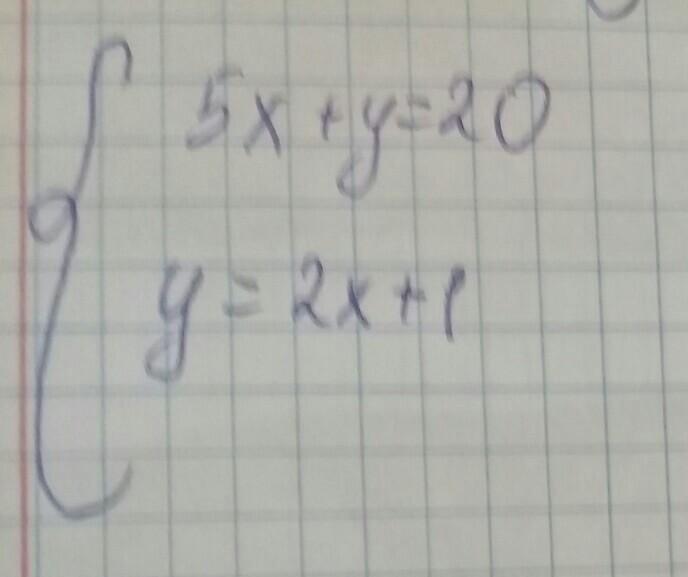 5x+y=20
y=2x+1